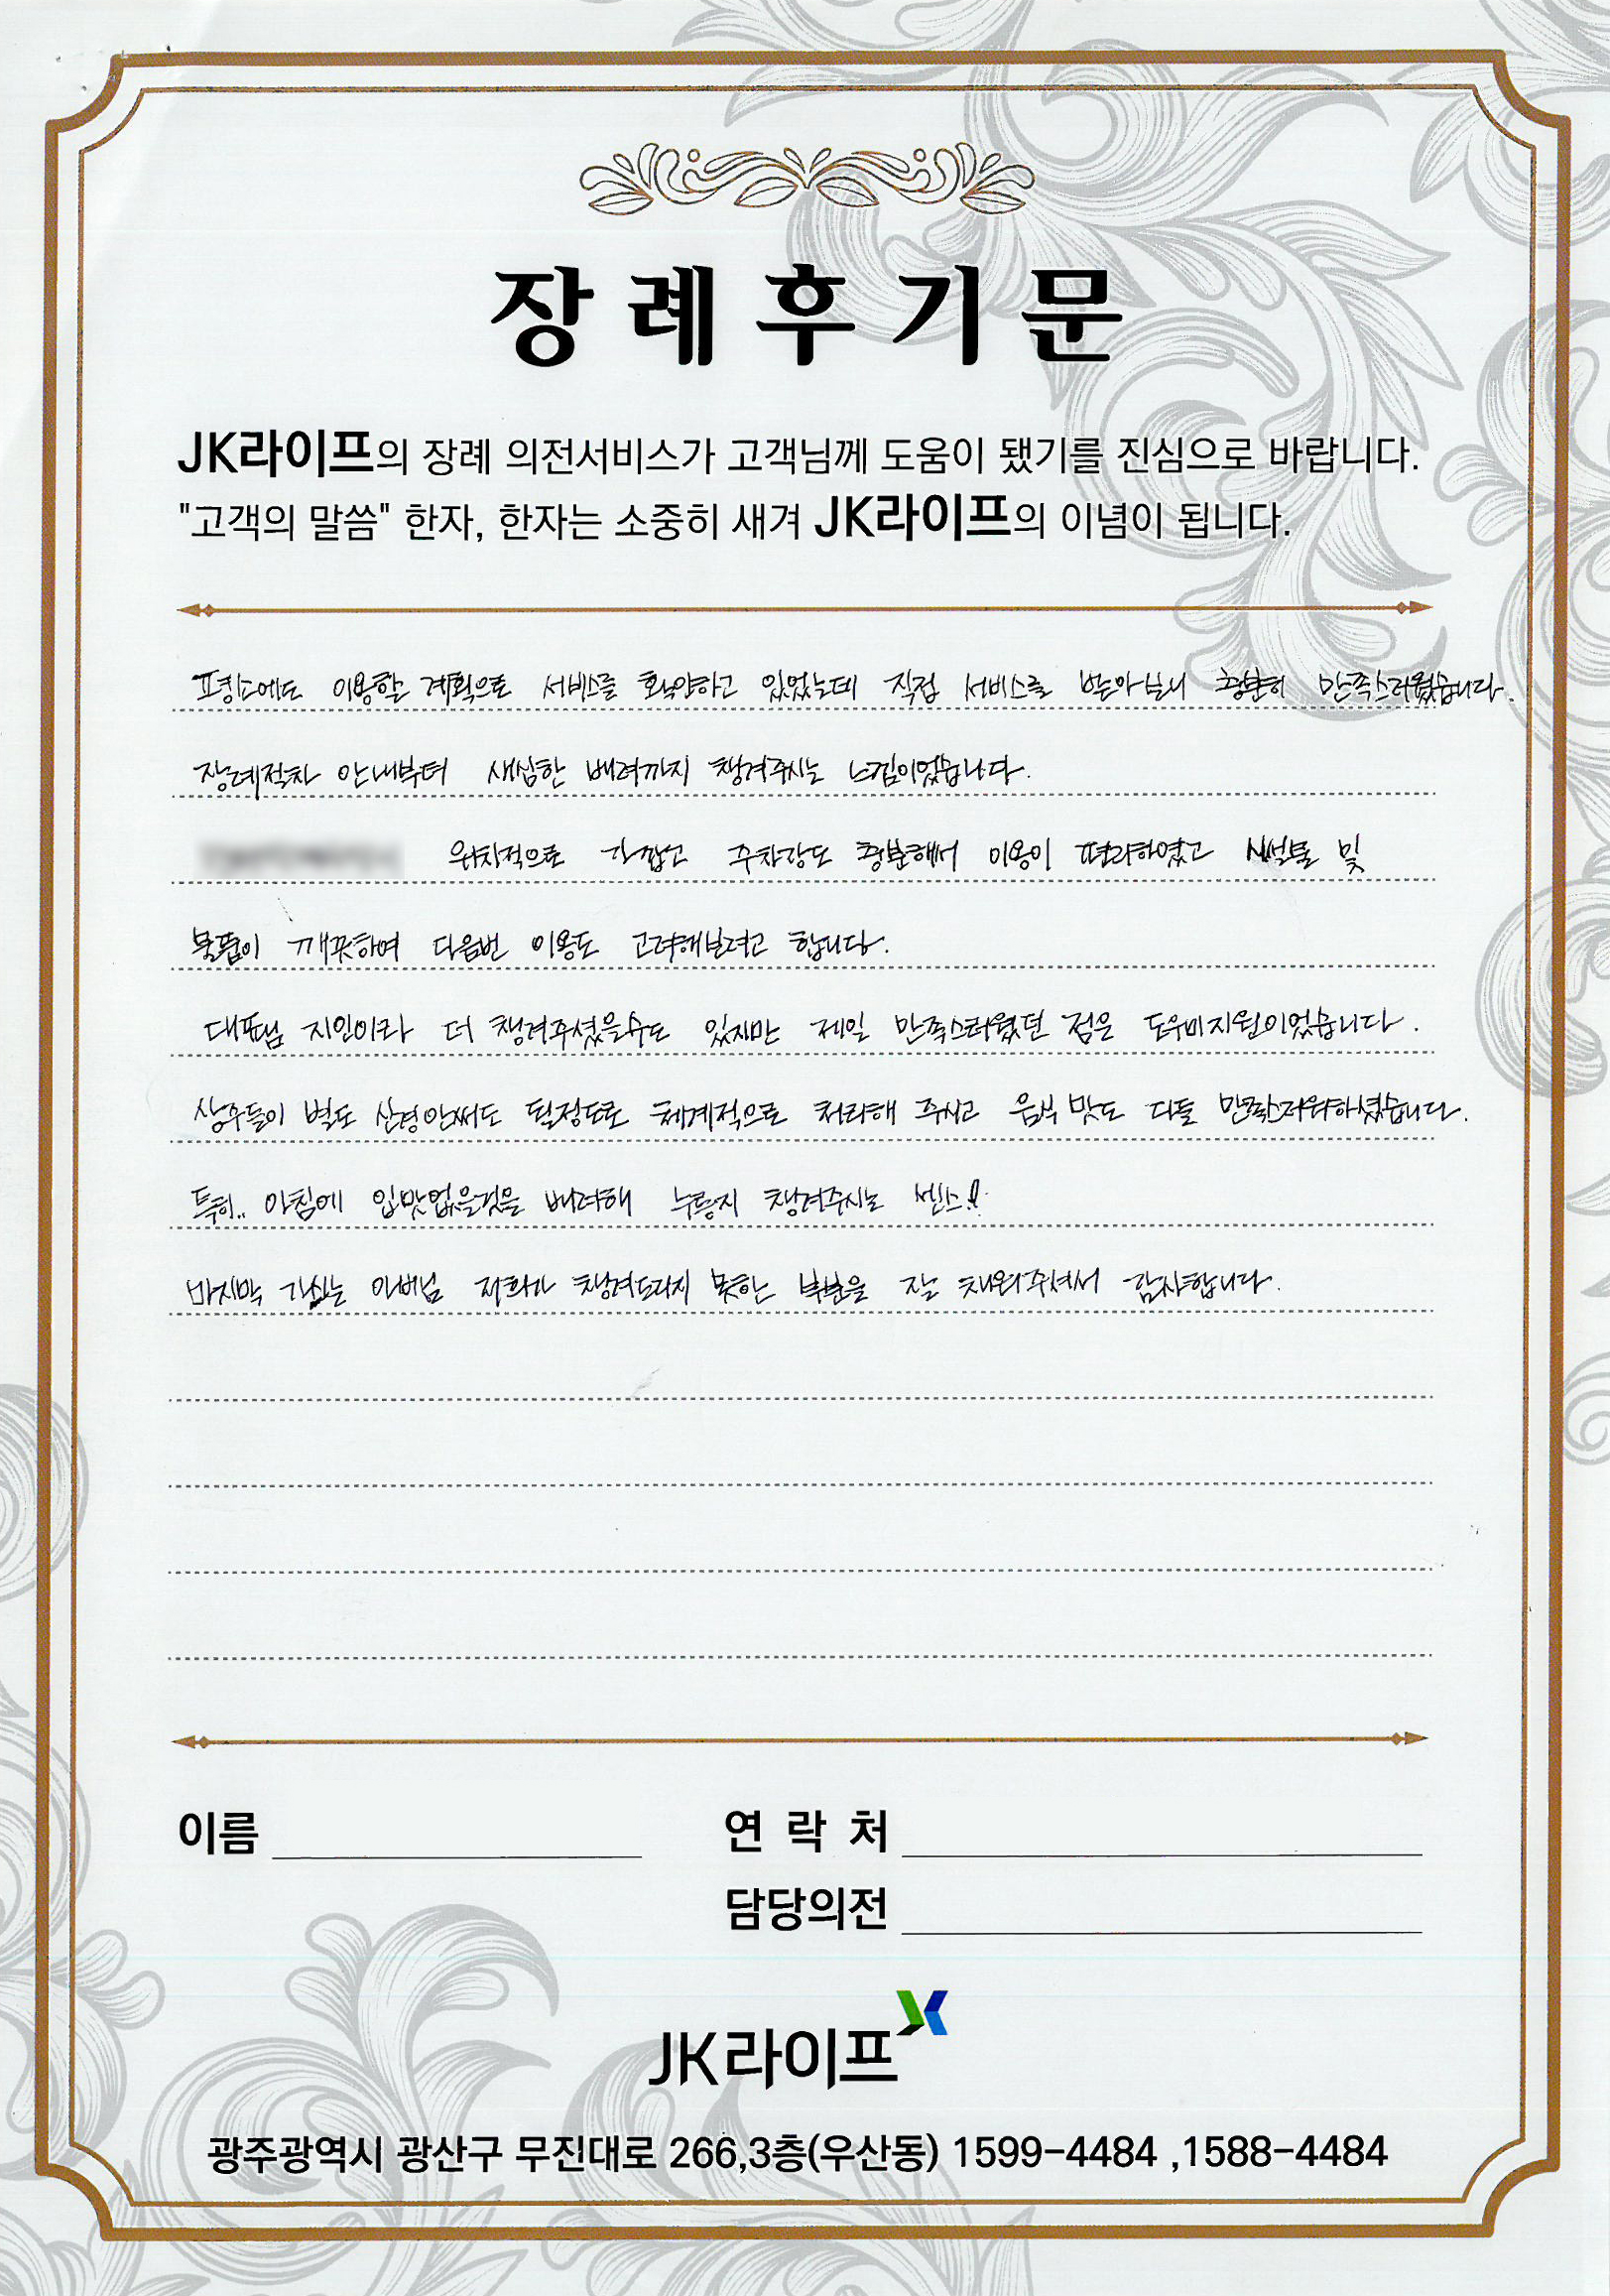 장례후기문
JK라이프의 장례 의전서비스가 고객님께 도움이 됐기를 진심으로 바랍니다.
"고객의 말씀" 한자, 한자는 소중히 새겨 JK라이프의 이념이 됩니다.
평소에도 이용할 계획으로 서비스를 확인하고 있었는데 직접 서비스를 받아보니 충분히 만족스러웠습니다.
장례절차 안내부터 세심한 배려까지 챙겨주시는 느낌이었습니다.
위치적으로 가깝고 주차장도 충분해서 이용이 편리하였고 시설물 및
물품이 깨끗하여 다음번 이용도 고려해보려고 합니다.
대표님 지인이라 더 챙겨주셨을수도 있지만 제일 만족스러웠던 점은 도우미지원이었습니다.
상주들이 별도 신경안써도 될정도로 체계적으로 처리해 주시고 음식 맛도 다들 만족스러워하셨습니다.
특히.. 아침에 입맛없을것을 배려해 누룽지 챙겨주시는 센스!!
마지막 가시는 아버님 저희가 챙겨드리지 못한 부분을 잘 채워주셔서 감사합니다.
이름
연락처
담당의전
JK라이프
광주광역시 광산구 무진대로 266,3층(우산동) 1599-4484 ,1588-4484